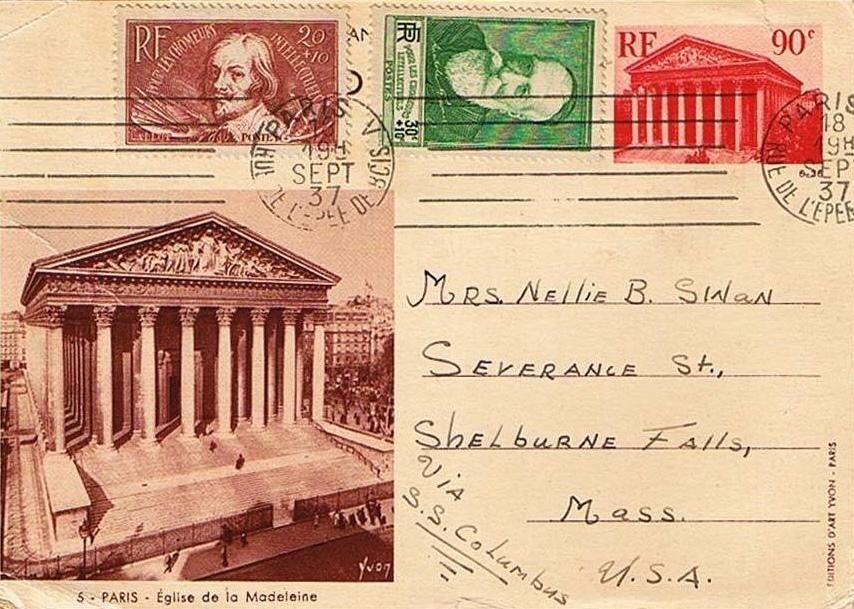 RF
POUR LES CHOMEURS INTELLECTUELS
20c
+10
POSTES
AN
RF
POUR LES CHOMEURS INTELLECTUELS
30c
+10c
POSTES
RF 90c
PARIS V
18
19H
SEPT
37
RUE DE L'EPEE DE
PARIS
18
19H
SEPT
37
RUE DE L'EPEE
Mrs. Nellie B. Sinan
Severance St.,
Shelburne Falls,
Mass.
U.S.A.
Via
S.S. Columbus
EDITIONS D'ART YVON - PARIS
Yvon
5 - PARIS - Église de la Madeleine